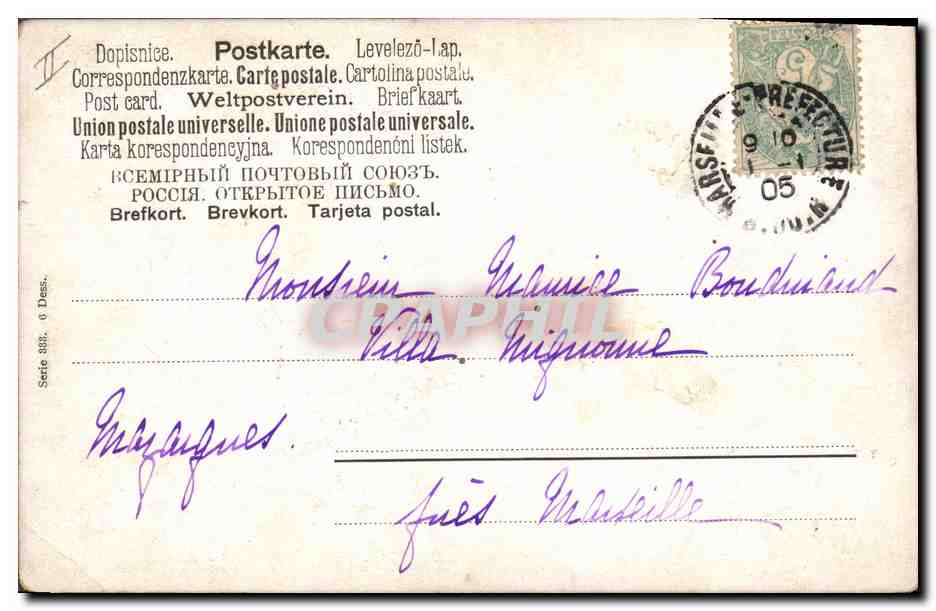 II
Dopisnice. Postkarte. Levelező-Lap.
Correspondenzkarte. Carte postale. Cartolina postale.
Post card. Weltpostverein. Briefkaart.
Union postale universelle. Unione postale universale.
Karta korespondencyjna. Korespondenční listek.
ВСЕМІРНЫЙ ПОЧТОВЫЙ СОЮЗЪ.
РОССІЯ. ОТКРЫТОЕ ПИСЬМО.
Brefkort. Brevkort. Tarjeta postal.
5
MARSEILLE-PREFECTURE
9 10
1 - 1
05
B. DU R.
Serie 333. 6 Dess.
Monsieur Maurice
CPAPHIL
Villa. Mignonne
Mazargues.
près Marseille